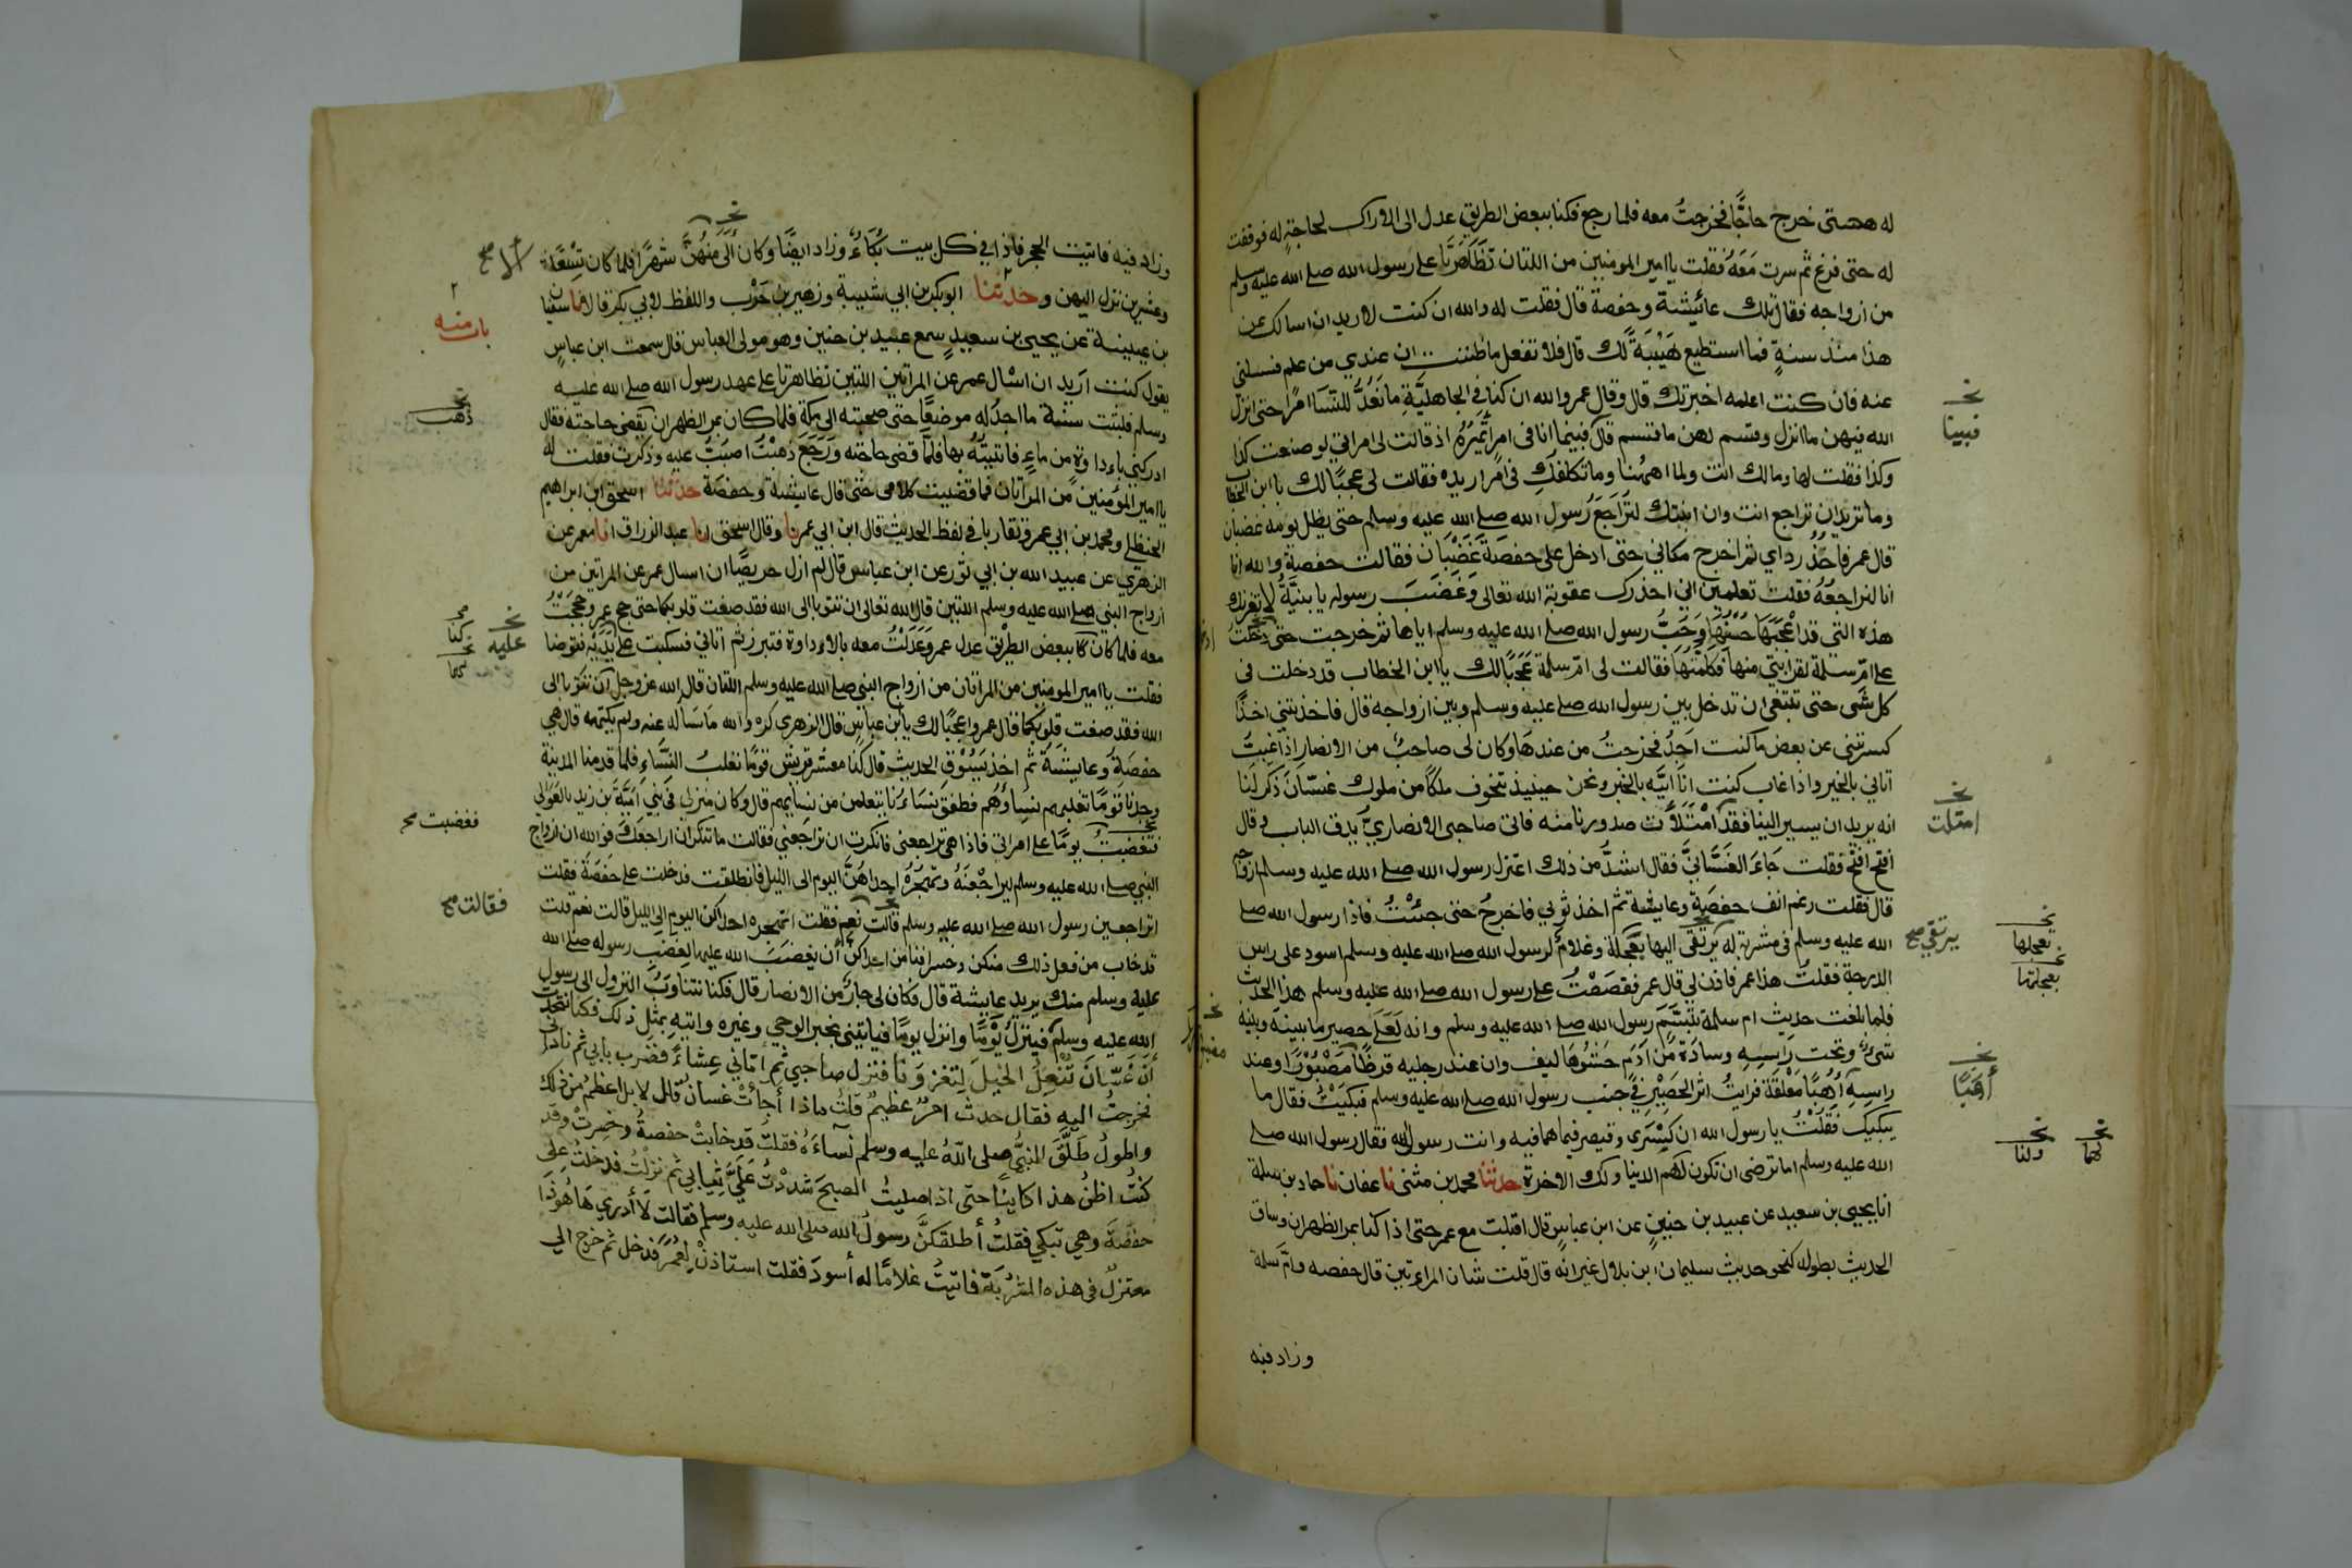 له هيبة حتى خرج حاجًّا فخرجتُ معه فلما رجع فكنا ببعض الطريق عدل الى الاوراك لحاجةٍ له فوقفت
له حتى فرغ ثم سرت مَعَهُ فقلت يا امير المومنين من اللتان تظَاهَرَتَا على رسول الله صلى الله عليه وسلم
من ازواجه فقال تلك عائيشة وحفصة قال فقلت له والله ان كنت لاريد ان اسالك عن
هذا منذ سنةٍ فما استطيع هَيْبَةً لك قال فلا تفعل ما ظننت ان عندي من علم فسلني
عنه فان كنت اعلمه اخبرتك قال وقال عمر والله ان كنا في الجاهليَّةِ ما نَعُدُّ للنّسَا امرًا حتى انزل
الله فيهن ما انزل وقسم لهن ما قسم قال فبينما انا في امرٍ أتَمِرُهُ اذ قالت لى امراتي لو صنعت كذا
وكذا فقلت لها وما لك انت ولما اههُنا وما تكلفكِ فى امرٍ اريده فقالت لى عجبًا لك يا ابن الخطاب
وما تريد ان تراجع انت وان ابنتك لتراجَعُ رسول الله صلى الله عليه وسلم حتى يظل يومه غضبان
قال عمر فاخُذُ رداي ثم اخرج مكاني حتى ادخل على حفصة غَضْبَان فقالت حفصة والله انا
انا لنراجعُهُ فقلت تعلمين اني احذرك عقوبة الله تعالى وَغَضَبَ رسوله يا بنيَّةُ لا تغرنك
هذه التي قد اعْجَبَهَا حُسْنُهَا وَحُبُّ رسول الله صلى الله عليه وسلم اياها ثم خرجت حتى دخلتُ
على امّ سلمة لقرابتي منها فكلمتُهَا فقالت لى امّ سلمة عَجَبًا لك يا ابن الخطاب قد دخلت في
كل شَى حتى تبتغى ان تدخل بين رسول الله صلى الله عليه وسلم وبين ازواجه قال فاخذتني اخذًا
كسرتني عن بعض ما كنت اَجِدُ فخرجتُ من عندهَا وكان لى صاحبٌ من الانصار اذا غبتُ
اتاني بالخبر واذا غاب كنت انا اتيَّه بالخبر ونحن حينيذ نتخوف ملكًا من ملوك غسّانَ ذكر لنا
انه يريد ان يسير الينا فقد امْتَلَأَت صدورنا منه فاتى صاحبى الانصاريُّ يدق الباب وقال
افتح افتح فقلت جَاءَ الغَسَّانيُّ فقال اشدُّ من ذلك اعتزل رسول الله صلى الله عليه وسلم ازواجه
قال فقلت رغم انف حفصَةِ وعايشة ثم اخذ ثوبي فاخرجُ حتى جئْتُ فاذا رسول الله صلى
الله عليه وسلم فى مشربة له يرتقى اليها بعَجَلة وغلامٌ لرسول الله صلى الله عليه وسلم اسود على راس
الدرجة فقلتُ هذا عمر فاذن لي قال عمر فقصَصْتُ على رسول الله صلى الله عليه وسلم هذا الحديث
فلما بلغت حديث ام سلمة تبَسَّمَ رسول الله صلى الله عليه وسلم وانه لَعَلَى حصير ما بينه وبينه
شئٌ وتحت راسِهِ وسادَة من ادَم حَشْوُهَا ليف وان عند رجليه قرظًا مَصْبُوْرًا وعند
راسِهِ اُهُبًا مَعَلقَة فرايتُ اثر الحَصِيْرِ فى جنب رسول الله صلى الله عليه وسلم فبكيَتُ فقال ما
يبكيك فقلْتُ يا رسول الله ان كِسْرَى وقيصر فيما هما فيه وانت رسول الله فقال رسول الله صلى
الله عليه وسلم اما ترضى ان تكون لهم الدنيا ولك الاخرة حدثنا محمد بن مثنى نا عفان نا حماد بن سلمة
انا يحيى بن سعيد عن عبيد بن حنين عن ابن عباس قال اقبلت مع عمر حتى اذا كنا بمر الظهران وساق
الحديث بطوله كنحو حديث سليمان ابن بلال غير انه قال قلت شان المراءتين قال حفصه وامّ سلمة
وزاد فيه
فبينا
امتلت
يرتقي صح
تعجلها
بعجلتها
أَهَبًا
لهما
ولنا
وزاد فيه فاتيت الحجر فاذا في كل بيت بُكَاءٌ وزاد ايضًا وكان اَلَى مِنْهُنَّ شهرًا فلما كان تِسْعًا
وعشرين نزل اليهن وحدثنا ابو بكر بن ابي شيبة وزهير بن حَرْب واللفظ لابي بكر قالا نا سفيان
بن عيينة عن يحيى بن سعيدٍ سمع عبيد بن حنين وهو مولى العباس قال سمعت ابن عباسٍ
يقول كنت اريد ان اسْال عمر عن المراتين اللتين تظاهرتا على عهد رسول الله صلى الله عليه
وسلم فلبثت سنة ما اجدُ له موضعًا حتى صحبته الى مكة فلما كان بمر الظهران يقضى حاجته فقال
ادركني باداوة من ماءٍ فاتيته بها فلما قضى حاجته وَرَجَع ذهبْتُ اصُبّ عليه وذكرت فقلت له
يا امير المؤمنين من المراتان فما قضيت كلامى حتى قال عايشة وحفصَة حدثنا اسحق ابن ابراهيم
الحنظلي ومحمد بن ابي عمر وتقاربا في لفظ الحديث قال ابن ابي عمر نا وقال اسحق انا عبد الرزاق انا معمر عن
الزهري عن عبيد الله بن ابي ثور عن ابن عباس قال لم ازل حريصًا ان اسال عمر عن المراتين من
ازواج النبي صلى الله عليه وسلم اللتين قال الله تعالى ان تتوبا الى الله فقد صغت قلوبكما حتى حج عمر وحججْتُ
معه فلما كان كنا ببعض الطريق عدل عمر وَعَدَلْتُ معه بالاداوة فتبرز ثم اتاني فسكبت على يَدَيْهِ فتوضا
فقلت يا امير المومنين من المراتان من ازواج النبي صلى الله عليه وسلم اللتان قال الله عز وجل ان تتوبا الى
الله فقد صغت قلوبكما قال عمر واعجبًا لك يا ابن عباس قال الزهري كره والله ماسَالَه عنه ولم يكتمه قال هي
حفصَةُ وعايشَةُ ثم اخذ يَسُوْق الحديث قال كنا معشر قريش قومًا نغلبُ النّسَاءَ فلما قدمنا المدينة
وجدنا قومًا تغلبهم نِسَاؤُهُم فطفقَ نسَاءُنا يتعلمن من نسايهم قال وكان منزلي في بني اُمَيَّةَ بن زيد بالعَوَالي
فتغضبتُ يومًا على امراتي فاذا هي تراجعنى فانكرت ان تراجعني فقالت ما تنكر ان اراجعَكَ فو الله ان ازواج
النبي صلى الله عليه وسلم ليراجعْنَهُ وتهجرُهُ احداهُنَّ اليوم الى الليل فانطلقت فدخلت على حَفصَةَ فقلت
اتراجعين رسول الله صلى الله عليه وسلم قالت نعم فقلت اتهجره احداكن اليوم الى الليل قالت نعم قلت
قد خاب من فعل ذلك منكن وخسر افتامن احداكن أن يغضبَ الله عليها لغضب رسوله صلى الله
عليه وسلم منك يريد عايشة قال وكان لى جارٌ من الانصار قال فكنا نتناوَبُ النزول الى رسول
الله عليه وسلم فينزلُ يَوْمًا وانزل يومًا فياتيني بخبر الوحي وغيره واتيه بمثل ذلك فكنا نتحدث
أن غَسّانَ تُنْعِلُ الخيلَ لِتغزوَنا فنزل صاحبي ثم اتاني عِشاءً فضرب بابي ثم ناداني
فخرجتُ اليه فقال حدث امرٌ عظيمٌ قلتُ ماذا أجأتْ غسانُ قال لا بل اعظمُ من ذلك
واطولُ طَلَّقَ النبيُّ صلى اللّهُ عليه وسلم نساءَهُ فقلتُ قد خابتْ حفصةُ وخسِرتْ وقد
كنتُ اظنُّ هذا كاينًا حتى اذا صليتُ الصبحَ شددْتُ عَلَيَّ ثيابي ثم نزلْتُ فدخلتُ على
حفصَة وهي تبكي فقلتُ أطلقكنَّ رسولُ الله صلى الله عليه وسلم فقالت لا أدري هَا هُوَ ذَا
معتزلٌ في هذه المشرُبَة فاتيتُ غلامًا له أسودَ فقلت استاذنْ لعُمَرَ فدخل ثم خرج الي
باب منه
ذهب
عليه
كنا
فغضبت صح
فقالت صح